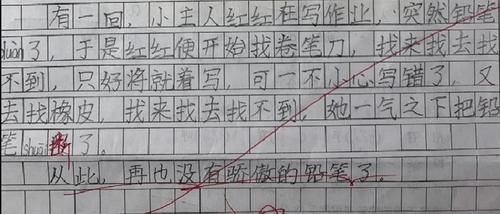 有一回，小主人红红在写作业，突然铅笔
duàn了，于是红红便开始找卷笔刀，找来找去找
不到，只好将就着写，可一不小心写错了，又
去找橡皮，找来找去找不到，她一气之下把铅
笔shuāi了。
从此，再也没有骄傲的铅笔了。